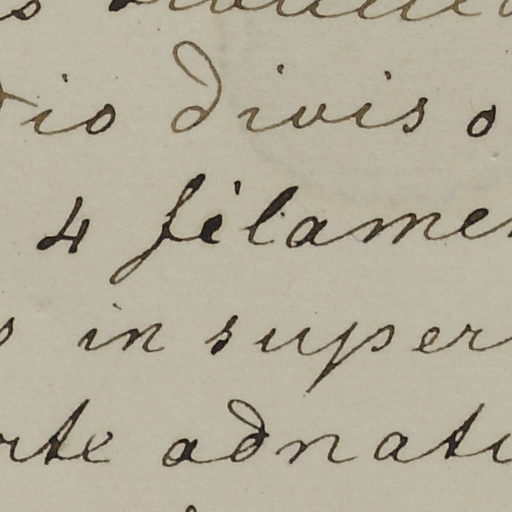 dio diviso
4 filamen
s in super
rte adnati